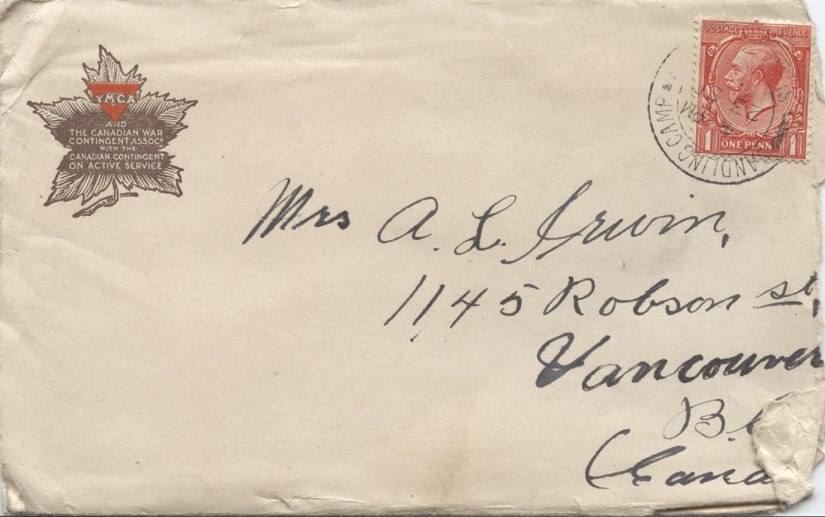 YMCA
AND
THE CANADIAN WAR
CONTINGENT ASSOC.
WITH THE
CANADIAN CONTINGENT
ON ACTIVE SERVICE
POSTAGE REVENUE
1 ONE PENNY 1
SANDLING CAMP
PM
Mrs A. L. Irwin,
1145 Robson st,
Vancouver
B.C
Cana